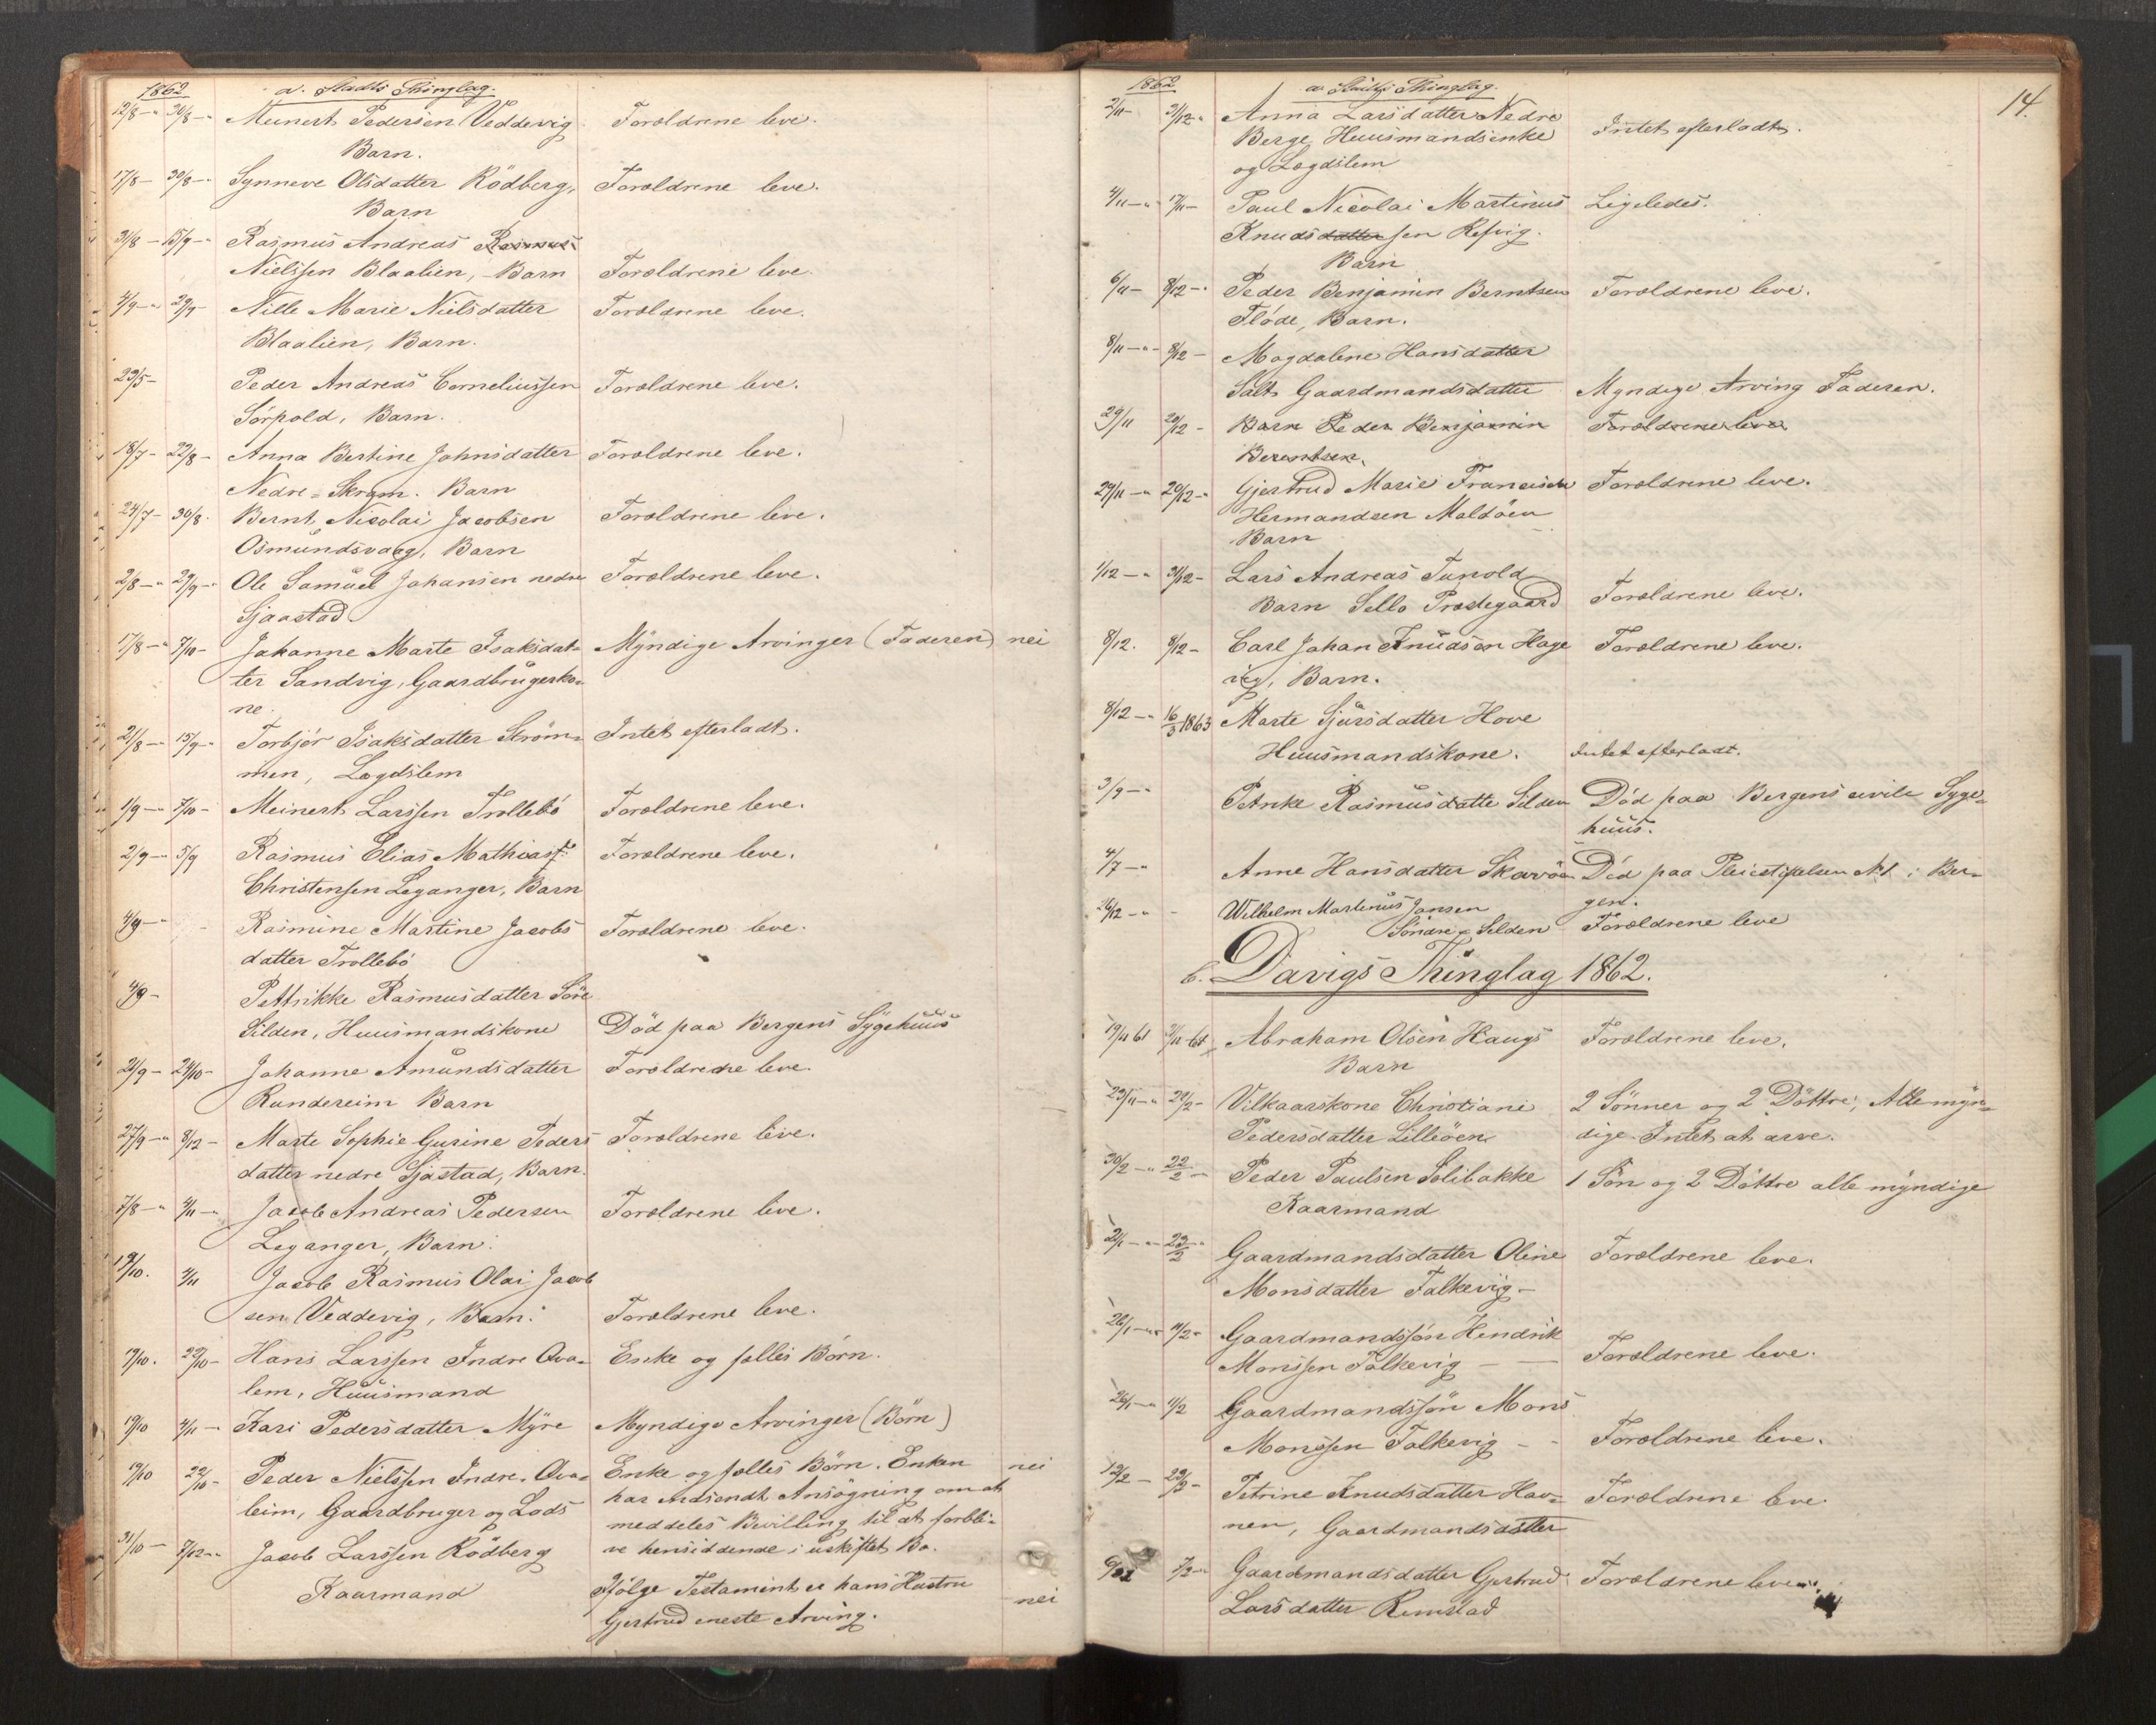 1862 a. Stadts Thinglag.
12/8 — " 30/8 — " Meinert Pedersen Veddevig Forældrene leve.
Barn.
17/8 — 30/8 — " Synneve Olsdatter Rödberg, Forældrene leve.
Barn
31/8 — 15/9 — " Rasmus Andreas Rasmus
Nielssen Blaalien, - Barn Forældrene leve.
4/9 — " 29/9 — Nille Marie Nielsdatter Forældrene leve.
Blaalien, Barn.
23/5 — Peder Andreas Corneliussen Forældrene leve.
Sörpold, Barn.
18/7 — 22/8 — Anna Bertine Johnsdatter Forældrene leve.
Nedre = Skram. Barn
24/7 — 30/8. Bernt Nicolai Jacobsen Forældrene leve.
Osmundsvaag, Barn
2/8 — " 29/9 — " Ole Samuel Johansen nedre Forældrene leve.
Sjaastad
17/8 — " 7/10 — Johanne Marte Isaksdat= Myndige Arvinger (Faderen) nei
ter Sandvig, Gaardbrugerko=
ne.
21/8 — " 15/9 — " Torbjör Isaksdatter Ström= Intet efterladt.
men, Lægdslem
1/9 — " 7/10 — Meinert Larssen Trollebö Forældrene leve.
2/9 — " 5/9 Rasmus Elias Mathias Forældrene leve.
Christensen Leganger, Barn
4/9 — " Rasmine Martine Jacobs Forældrene leve.
datter Trollebö
4/9 — Pettrikke Rasmusdatter Söre
Silden, Huusmandskone Död paa Bergens Sygehuus
21/9 — 24/10 — Johanne Amundsdatter Forældrene leve.
Rundereim Barn
27/9 — " 8/12 — Marte Sophie Gurine Peders Forældrene leve.
datter nedre Sjåstad, Barn.
7/8 — " 4/11 — " Jacob Andreas Pedersen Forældrene leve.
Leganger, Barn.
19/10. 4/11 Jacob Rasmus Olai Jacob
sen Veddevig, Barn. Forældrene leve.
19/10. 22/10 — Hans Larssen Indre Qva= Enke og fælles Börn.
lem, Huusmand
19/10 4/11 — Kari Pedersdatter Myre Myndige Arvinger (Börn)
19/10 22/10 — Peder Nielssen Indre Qva= Enke og fælles Börn. Enken nei
leim, Gaardbruger og Lods har indsendt Ansögning om at
meddeles Bevilling til at forbli=
31/10 — 7/12 — " Jacob Larssen Rödberg ve hensiddende i uskiftet Bo.
Kaarmand Ifölge Testament er hans Hustru nei
Gjertrud eneste Arving.
14.
1862 a. Stadts Thinglag.
2/11 — 31/12 — " Anna Larsdatter Nedre
Berge, Huusmandsenke Intet efterladt.
og Lægdslem
4/11 — " 17/11 — Paul Nicolai Martinus Ligeledes.
Knudsdatter sen Refvig.
Barn
6/11 — 8/12 — " Peder Benjamin Berntsen Forældrene leve.
Flöde, Barn.
8/11 — " 8/12 — Magdalene Hansdatter
Salt Gaardmandsdatter Myndige Arving Faderen.
29/11 20/12 — Barn Peder Benjamin Forældrene leve
Berentsen
29/11 — " 20/12 — " Gjertrud Marie Francisca Forældrene leve.
Hermandsen Maldöen
Barn
1/12 — " 31/12 — Lars Andreas Tunold
Barn Sello Præstegaard Forældrene leve.
8/12. 9/12 — Carl Johan Knudsen Hage Forældrene leve.
vig, Barn.
8/12 — " 16/3 1863 Marte Sjursdatter Hove
Huusmandskone. Intet efterladt.
3/9 — " Petrike Rasmusdatte Silden Död paa Bergens civile Syge=
huus.
4/7 — " Anne Hansdatter Skavöen Död paa Pleiestiftelsen N. 1 i Ber=
gen.
26/12 — " — Wilhelm Martinus Jansen
Söndre Silden Forældrene leve
b. Davigs Thinglag 1862.
19/11 61 Abraham Olsen Haugs Forældrene leve.
Barn
23/11 — " 20/2 — Vilkaarskone Christiane 2 Sönner og 2 Döttre, Alle myn=
Pedersdatter Lilleöen dige. Intet at arve.
30/2 — " 22/2 — Peder Paulsen Solibakke 1 Sön og 2 Döttre alle myndige
Kaarmand
2/1 — " 23/2 Gaardmandsdatter Oline Forældrene leve.
Monsdatter Falkevig —
26/1 — " 11/2 " Gaardmandssön Hendrik
Monssen Falkevig — — Forældrene leve.
26/1 — " 11/2 Gaardmandssön Mons
Monssen Falkevig — - Forældrene leve.
12/2 — 23/2 — Petrine Knudsdatter Hav= Forældrene leve.
nen, Gaardmandsdatter
7/2 — " Gaardmandsdatter Gjertrud Forældrene leve.
Larsdatter Rimstad